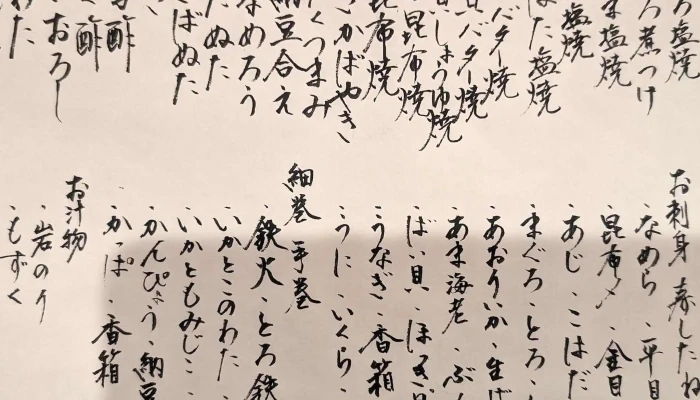 ろ塩焼
ろ煮つけ
ま塩焼
塩焼
はた塩焼
バター焼
バター焼
しょうゆ焼
昆布焼
昆布焼
かばやき
くつまみ
納豆合え
なめろう
たぬた
ばぬた
酢
酢
おろし
わた
お刺身 寿したね
・なめら ・平目
・昆布〆 ・金目
・あじ ・こはだ
・まぐろ ・とろ ・
・あおりいか ・生
・あま海老 ・ぶ
・ばい貝 ・ほ
・うなぎ ・香箱
・うに ・いくら ・
細巻 手巻
・鉄火 ・とろ鉄
・いかとこのわた
・いかともみじこ ・
・かんぴょう ・納豆
・かっぱ ・香箱
お汁物
・岩のり
・もずく